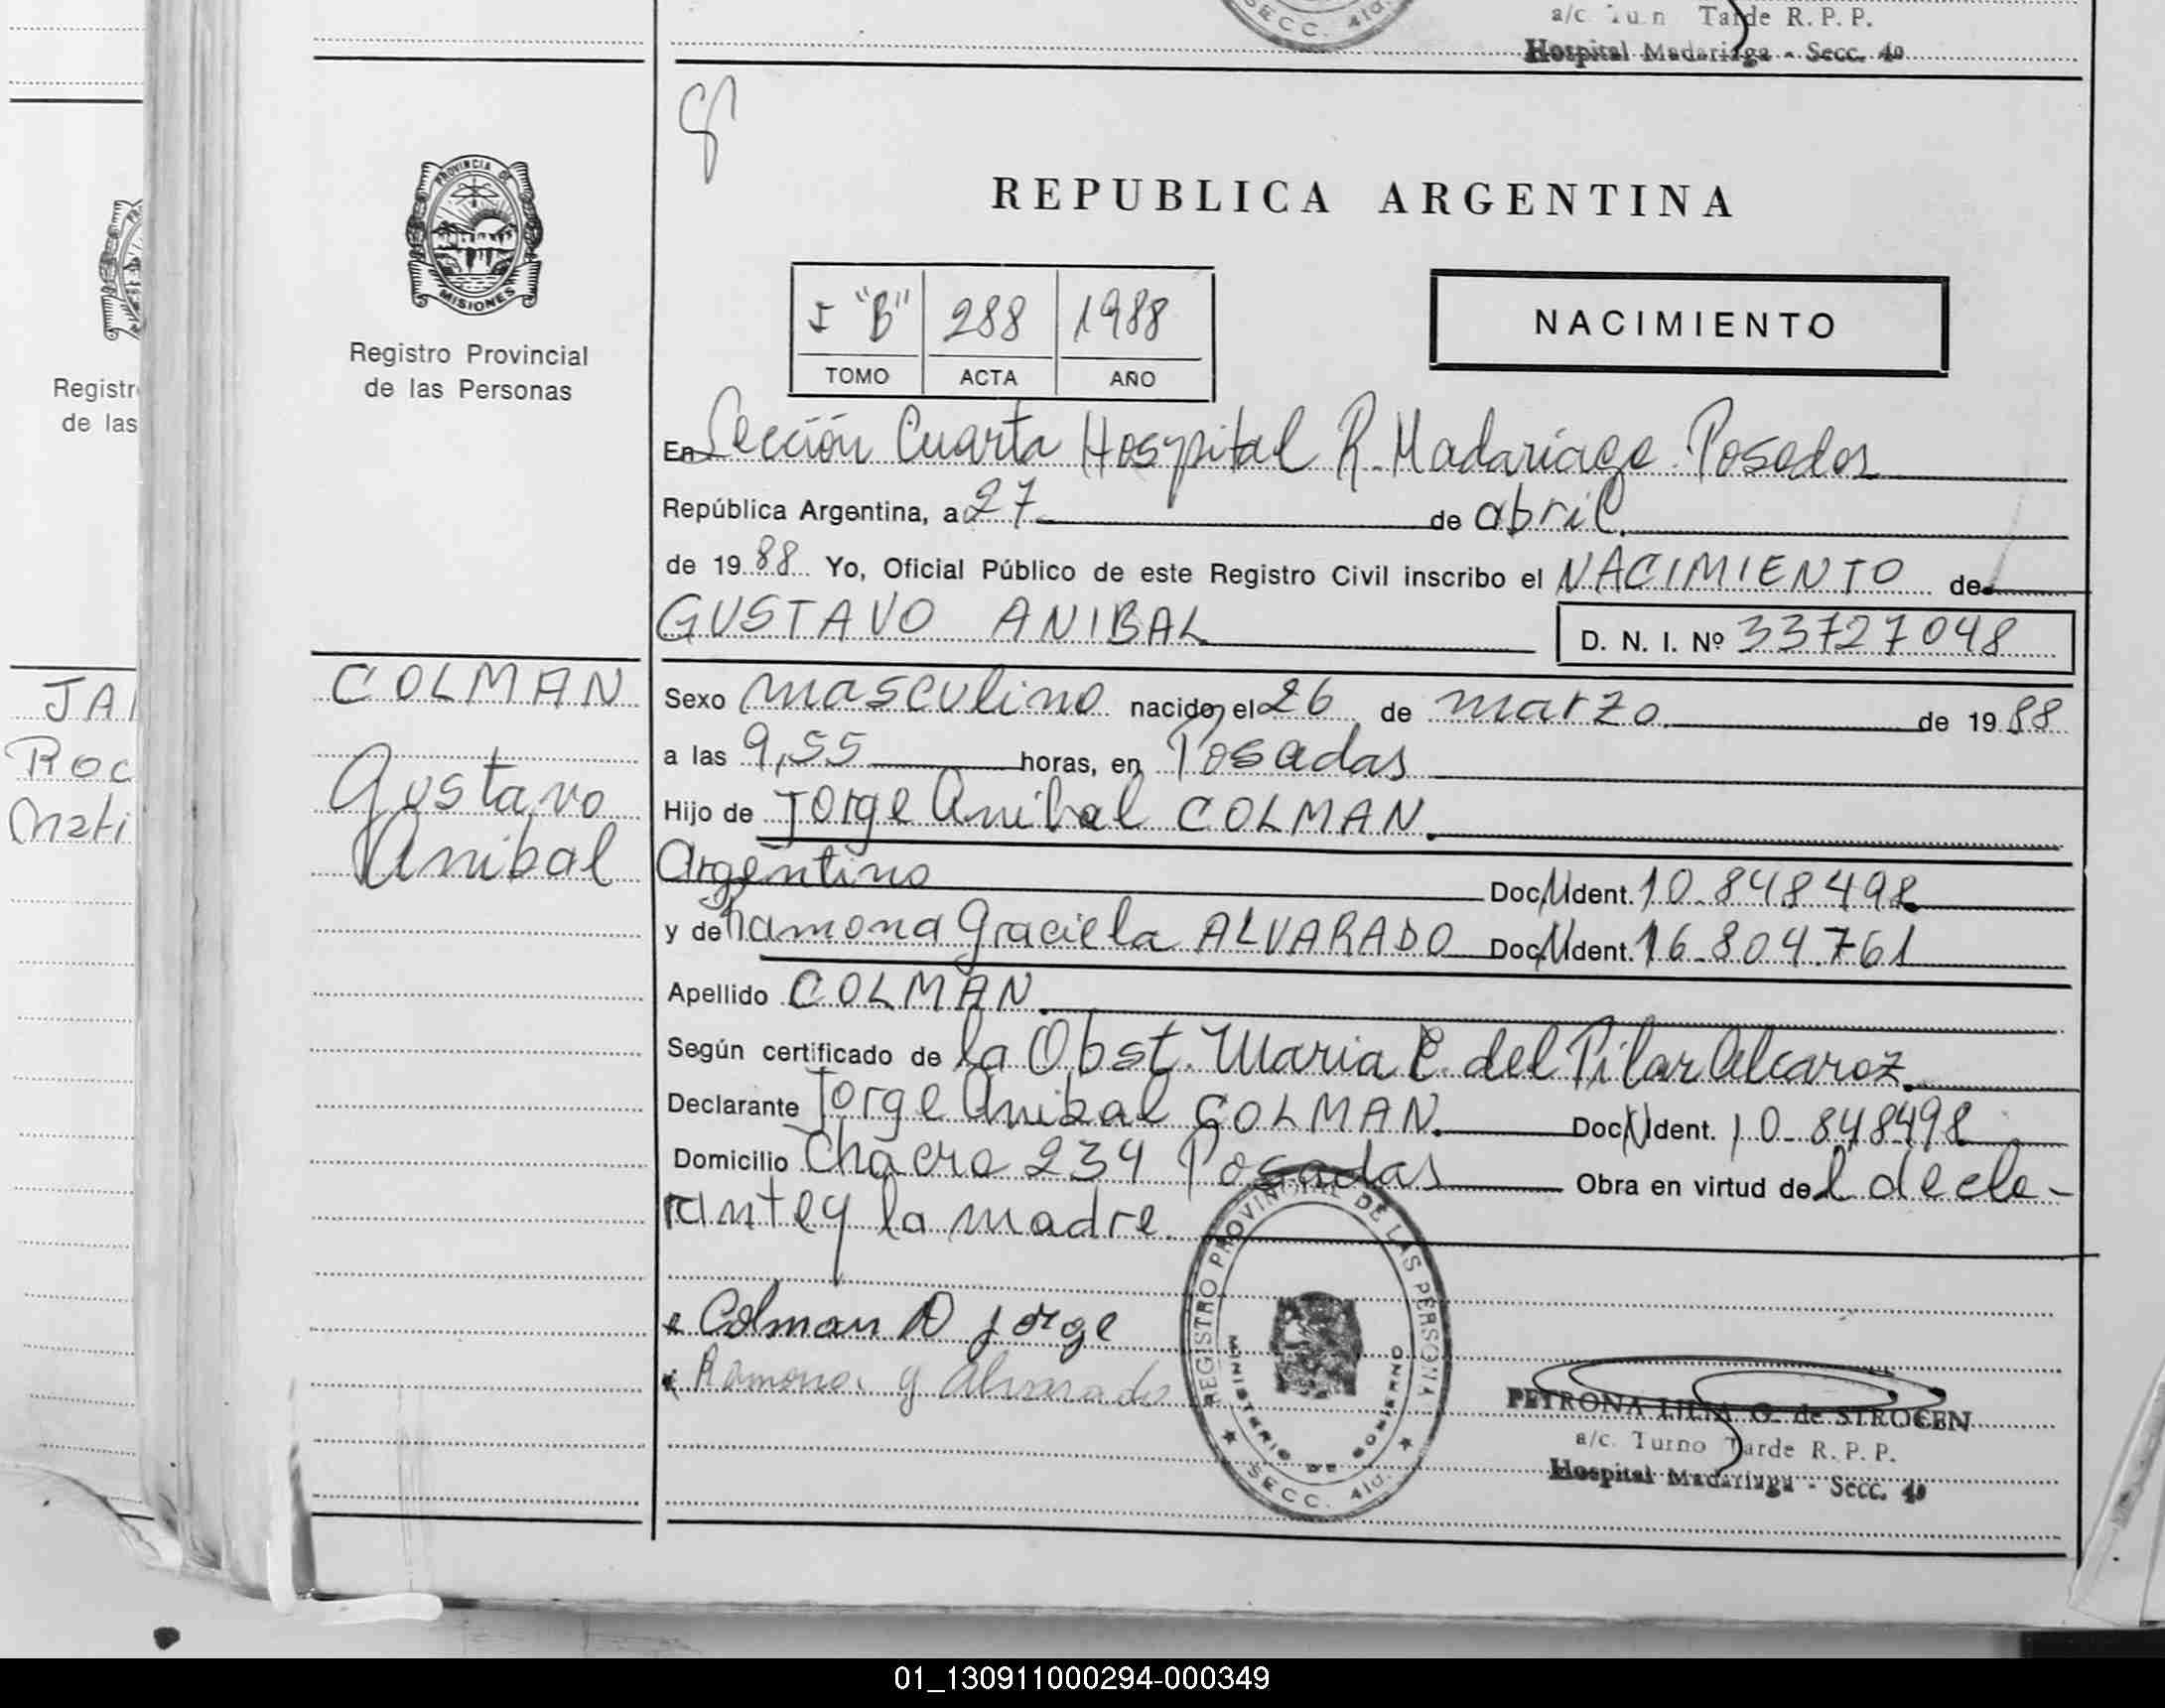 SECC. 4ta.
a/c Tarde R. P. P.
Hospital Madariaga - Secc. 4º
PROVINCIA DE
MISIONES
Registro Provincial
de las Personas
Registr
de las
REPUBLICA ARGENTINA
"B" 288 1988
TOMO ACTA AÑO
NACIMIENTO
En Sección Cuarta Hospital R. Madariaga Posadas
República Argentina, a 27 de abril
de 1988 Yo, Oficial Público de este Registro Civil inscribo el NACIMIENTO de
GUSTAVO ANIBAL
D. N. I. Nº 33727048
COLMAN
Gustavo
Anibal
JA
Roc
Mati
Sexo masculino nacido el 26 de marzo de 1988
a las 9,55 horas, en Posadas
Hijo de Jorge Anibal COLMAN.
Argentino Doc. Ident. 10.848498
y de Ramona Graciela ALVARADO Doc. Ident. 16.804.761
Apellido COLMAN
Según certificado de la Obst. Maria E. del Pilar Alcaraz
Declarante Jorge Anibal COLMAN. Doc. Ident. 10.848498
Domicilio Chacra 234 Posadas Obra en virtud del decla-
rante y la madre.
Colman A Jorge
Ramona g Alvarado
REGISTRO PROVINCIAL DE LAS PERSONAS
MINISTERIO DE GOBIERNO
SECC. 4ta.
PETRONA LILIA G. de STROCEN
a/c. Turno Tarde R. P. P.
Hospital Madariaga - Secc. 4º
01_130911000294-000349